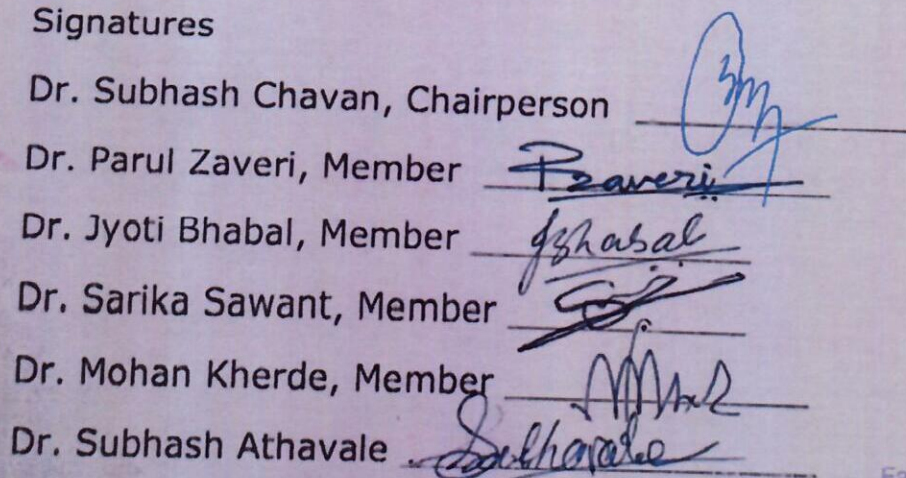 Signatures
Dr. Subhash Chavan, Chairperson
Dr. Parul Zaveri, Member Pzaveri
Dr. Jyoti Bhabal, Member Jbhabal
Dr. Sarika Sawant, Member
Dr. Mohan Kherde, Member
Dr. Subhash Athavale